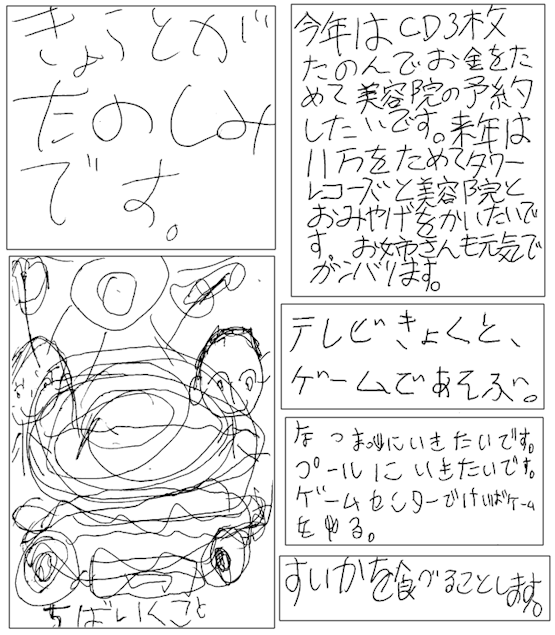 きょうとが
たのしみ
です。
ちばいくこと
今年はCD3枚
たのんでお金をた
めて美容院の予約
したいです。来年は
11万をためてタワー
レコーズと美容院と
おみやげをかいたいで
す。お姉さんも元気で
ガンバリます。
テレビきょくと、
ゲームであそぶ。
なつまつりにいきたいです。
プールにいきたいです。
ゲームセンターでけいばゲーム
をやる。
すいかを食べることします。